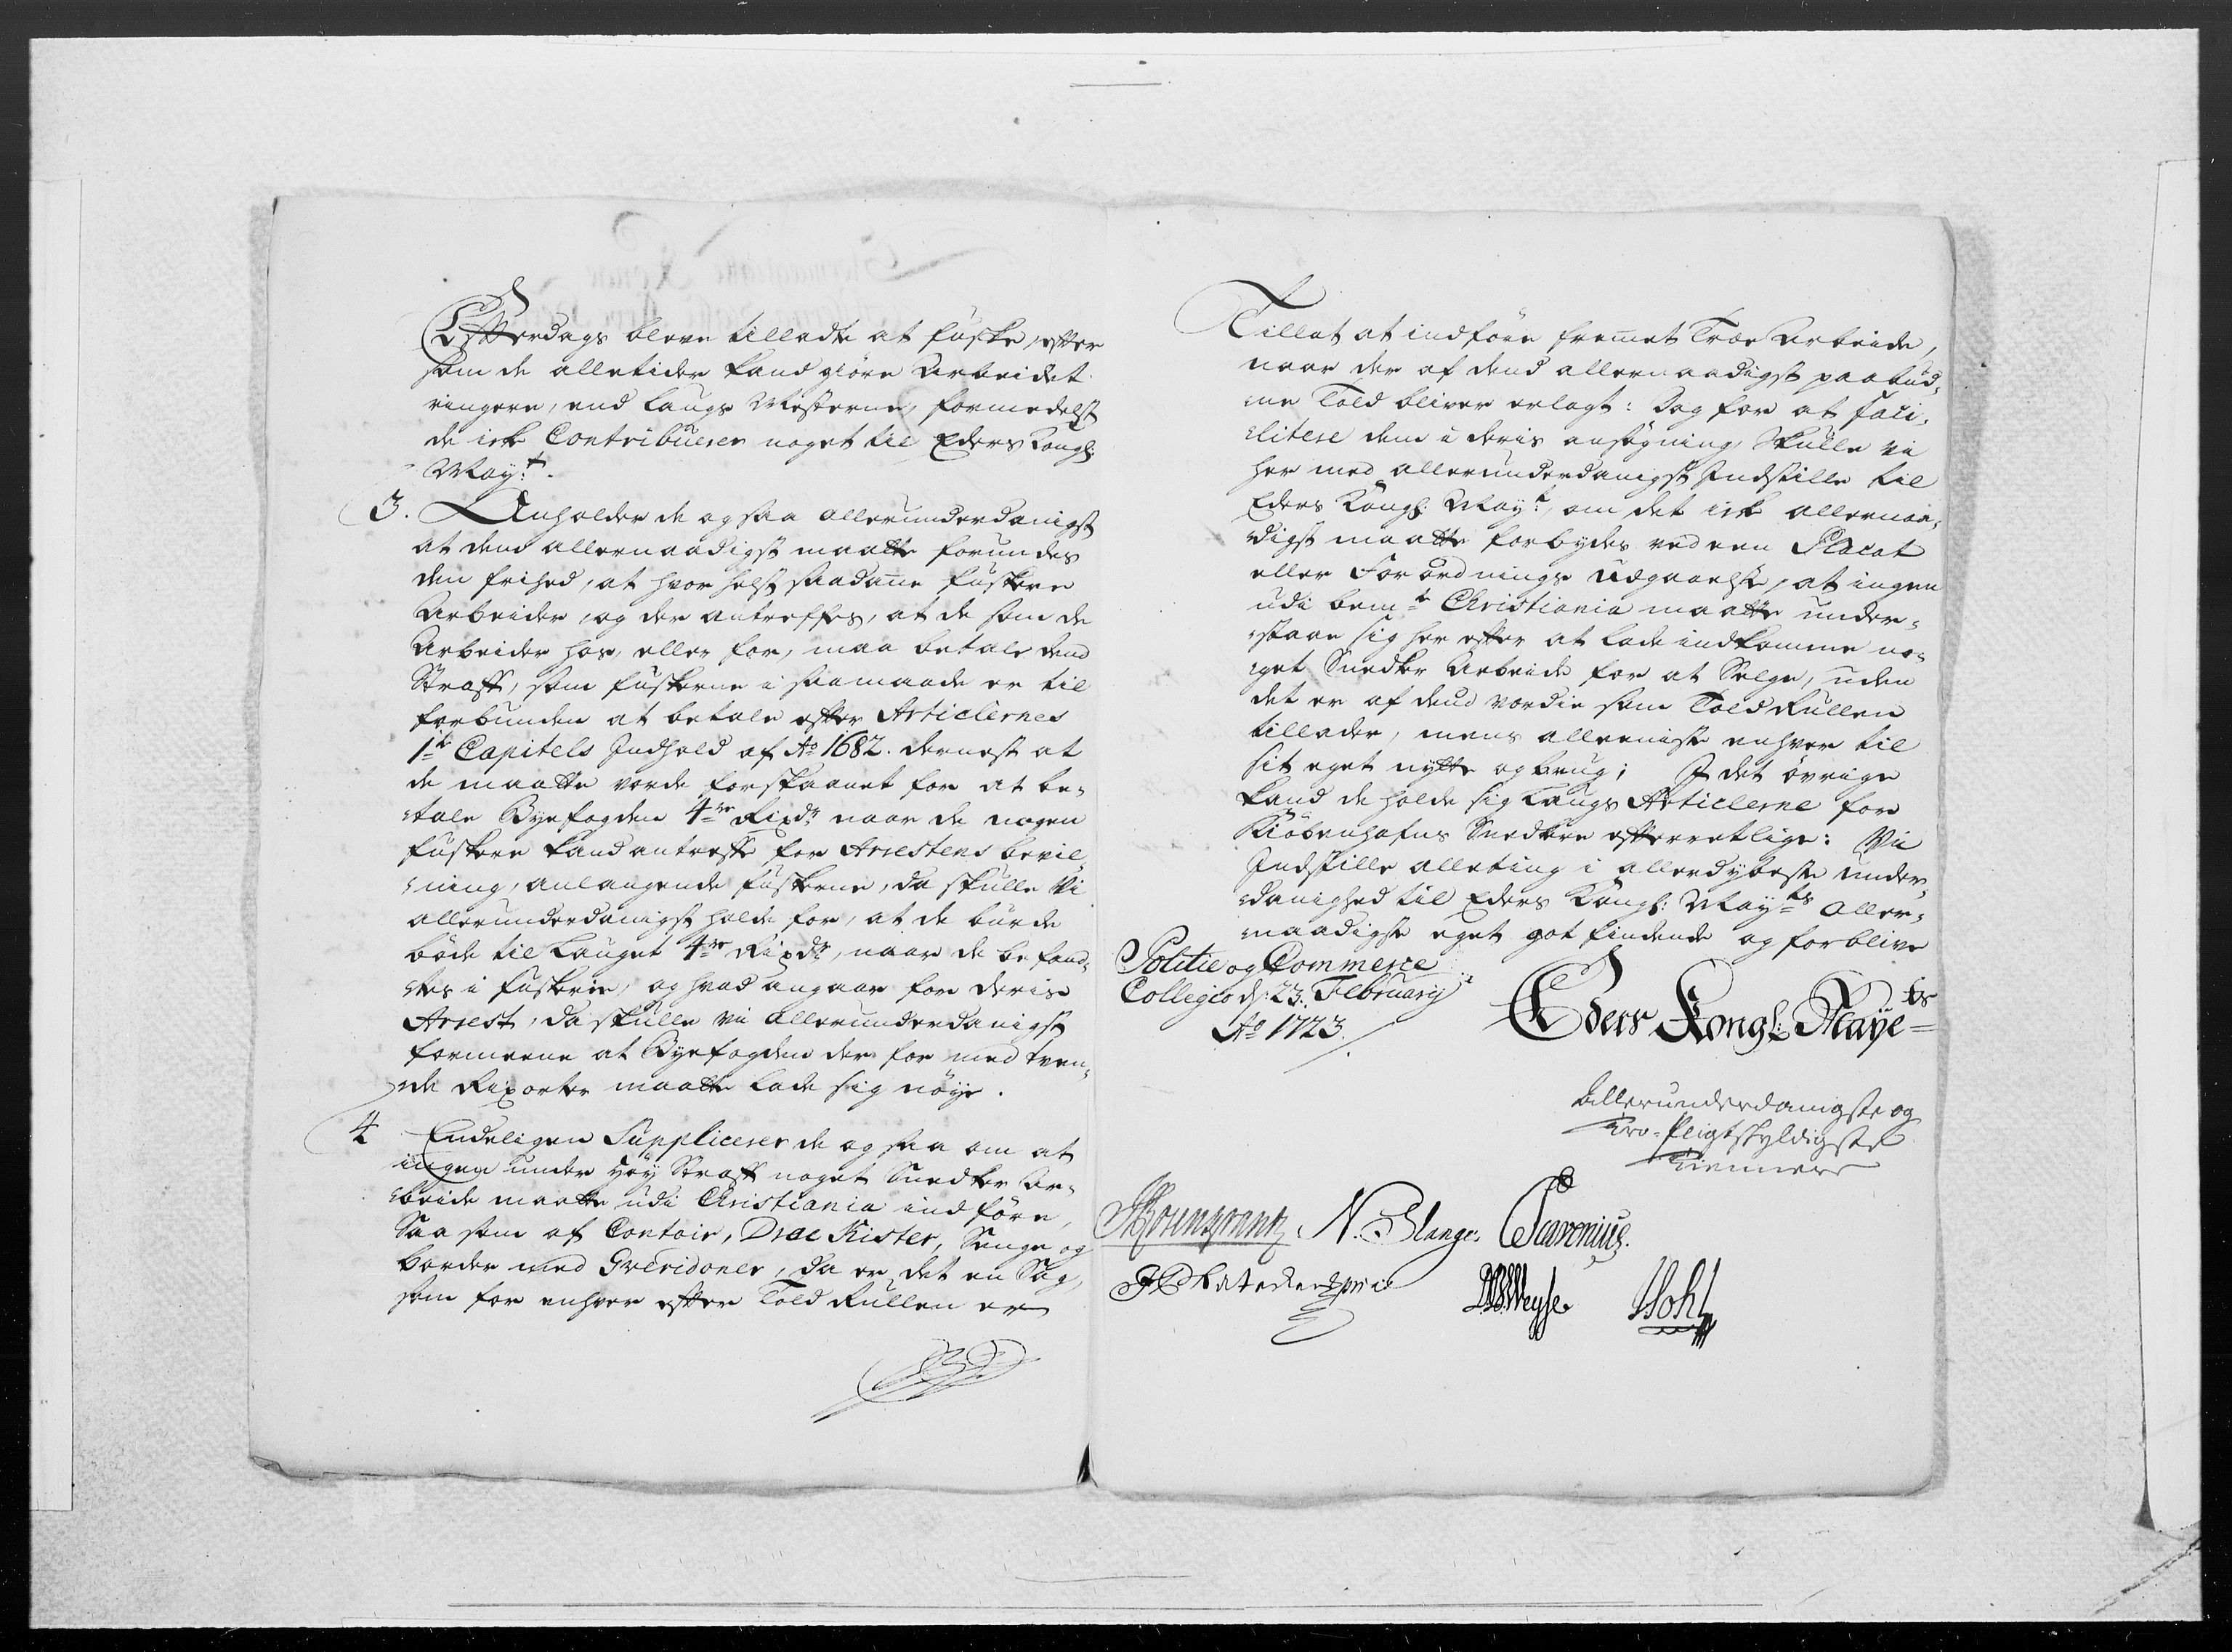 Efterdags bleve tilladte at fuske, efter
som de alletider kand giöre Arbeidet
ringere, end Laugs Mesterne, formedelst
de ick Contribuerer noget til Eders Kongl:
Mayt.
3. Anholder de og saa allerunderdanigst
at dend allernaadigst maatte forundes
den frihed, at hvor helst saadanne fuskere
Arbeider, og der antreffes, at de som de
Arbeider hos, eller for, maa betale dend
Straff, som fuskerne i saa maade er til
forbunden at betale efter Articlernes
1te Capitels Indhold af Ao 1682. dernest at
de maatte vorde forskaanet for at be-
tale Byefogden 4re Rixdr naar de nogen
fuskere kand antreffe for Arrestens bevil-
ning, anlangende fuskerne, da skulle Vi
allerunderdanigst holde for, at de burde
böde til Lauget 4re Rixdr, naar de befand-
tes i fuskerie, og hvad angaar for deris
Arrest, da skulle vi allerunderdanigst
formeene at Byefogden der for med tven-
de Rixorter maatte lade sig nöye.
4 Endeligen Supplicerer de og saa om at
ingen under höy Straff noget Snedker Ar-
beide maatte udi Christiania indföre,
Saa som af Contoir, Drae Kister, Senge og
Border med Gveridoner, da er det en Sag,
som for enhver efter Told Rullen er
Tillat at indföre fremmet Træe Arbeide,
naar der af dend allernaadigst paabud-
ne Told bliver erlagt: Dog for at faci-
litere dem i deris ansögning Skulle vi
her med allerunderdanigst Indstille til
Eders Kongl: Mayt, om det ick allernaa-
digst maatte forbydes ved een Placat
eller Forordnings udgaaelse, at ingen
udi bemte Christiania maatte under-
staae sig her efter at lade indkomme no-
get Snedker Arbeide for at Selge, uden
det er af dend værdie som Told Rullen
tillader, mens alleeniste enhver til
sit eget nytte og brug; I det övrige
kand de holde sig Laugs Articlerne for
Kiöbenhafns Snedkere efterretlige: Vi
Indstille alleting i allerdybeste under-
danighed til Eders Kongl: Mayts Aller-
naadigste eget got findende og forblive
Politie og Commerce
Collegio d: 23. February
Ao 1723.
Eders Kongl: Mayets
Allerunderdanigste og
Troe-Pligtskyldigste
Tienner
N. Slange.
Weyse Hohl